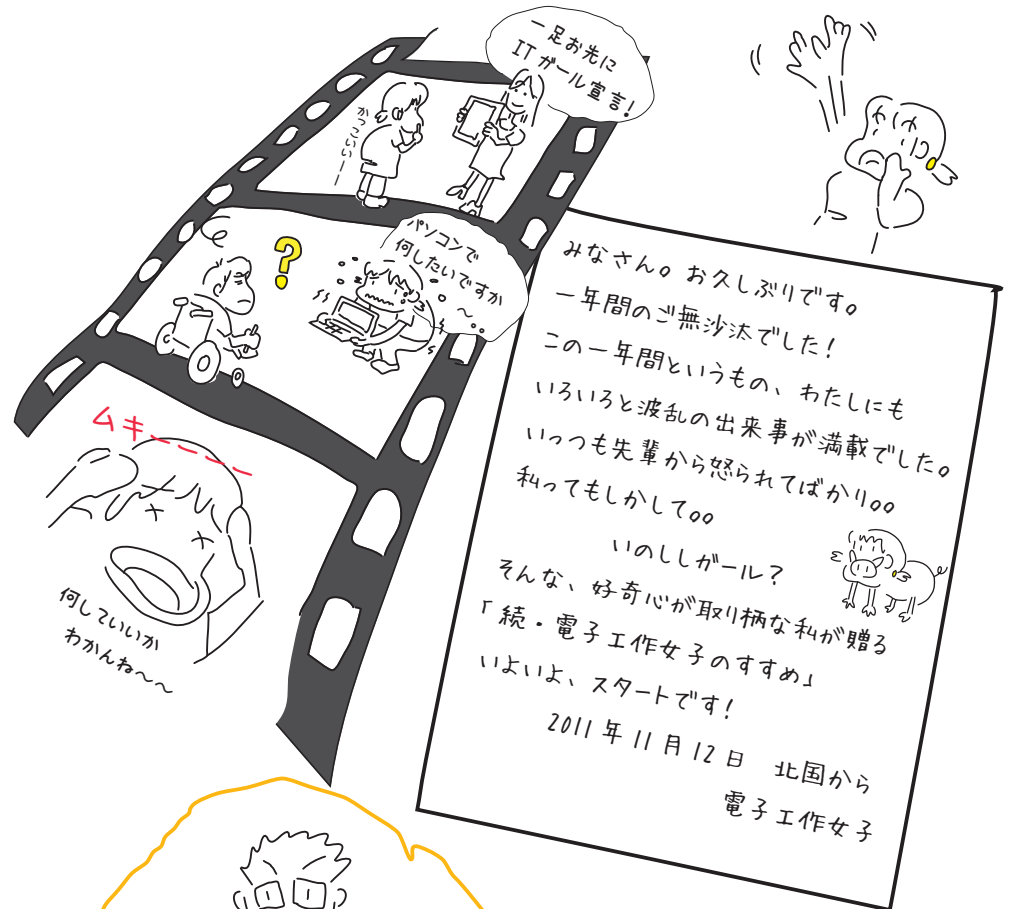 一足お先に
ITガール宣言!
かっこいいーー
パソコンで
何したいですか
〜。。
?
ムキーーーー
何していいか
わかんね〜〜
みなさん。お久しぶりです。
一年間のご無沙汰でした!
この一年間というもの、わたしにも
いろいろと波乱の出来事が満載でした。
いっつも先輩から怒られてばかり。。
私ってもしかして。。
いのししガール?
そんな、好奇心が取り柄な私が贈る
「続・電子工作女子のすすめ」
いよいよ、スタートです!
2011年11月12日 北国から
電子工作女子